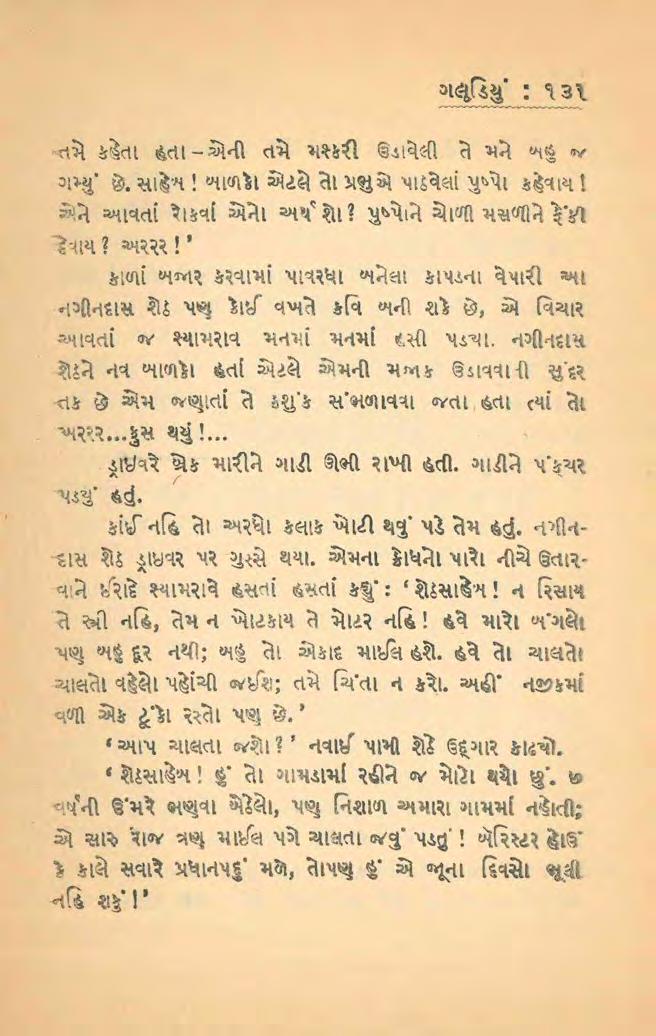 ગલૂડિયું : ૧૩૧
તમે કહેતા હતા – એની તમે મશ્કરી ઉડાવેલી તે મને બહુ જ
ગમ્યું છે. સાહેબ ! બાળકો એટલે તો પ્રભુએ પાઠવેલાં પુષ્પો કહેવાય !
એને આવતાં રોકવાં એનો અર્થ શો ? પુષ્પોને ચોળી મસળીને ફેંકી
દેવાય ? અરરર ! ’
કાળાં બજાર કરવામાં પાવરધા બનેલા કાપડના વેપારી આ
નગીનદાસ શેઠ પણ કોઈ વખતે કવિ બની શકે છે, એ વિચાર
આવતાં જ શ્યામરાવ મનમાં મનમાં હસી પડ્યા. નગીનદાસ
શેઠને નવ બાળકો હતાં એટલે એમની મજાક ઉડાવવાની સુંદર
તક છે એમ જણાતાં તે કશુંક સંભળાવવા જતા હતા ત્યાં તો
અરરર...ફુસ થયું !...
ડ્રાઇવરે બ્રેક મારીને ગાડી ઊભી રાખી હતી. ગાડીને પંક્ચર
પડ્યું હતું.
કાંઈ નહિ તો અરધો કલાક ખોટી થવું પડે તેમ હતું. નગીન-
દાસ શેઠ ડ્રાઇવર પર ગુસ્સે થયા. એમના ક્રોધનો પારો નીચે ઉતાર-
વાને ઈરાદે શ્યામરાવે હસતાં હસતાં કહ્યું : ‘ શેઠસાહેબ ! ન રિસાય
તે સ્ત્રી નહિ, તેમ ન ખોટકાય તે મોટર નહિ ! હવે મારો બંગલો
પણ બહુ દૂર નથી; બહુ તો એકાદ માઈલ હશે. હવે તો ચાલતો
ચાલતો વહેલો પહોંચી જઈશ; તમે ચિંતા ન કરો. અહીં નજીકમાં
વળી એક ટૂંકો રસ્તો પણ છે. ’
‘ આપ ચાલતા જશો ? ’ નવાઈ પામી શેઠે ઉદ્‌ગાર કાઢ્યો.
‘ શેઠસાહેબ ! હું તો ગામડામાં રહીને જ મોટો થયો છું. છ
વર્ષની ઉંમરે ભણવા બેઠેલો, પણ નિશાળ અમારા ગામમાં નહોતી;
એ સારુ રોજ ત્રણ માઈલ પગે ચાલતા જવું પડતું ! બૅરિસ્ટર હોઉં
કે કાલે સવારે પ્રધાનપદું મળે, તોપણ હું એ જૂના દિવસો ભૂલી
નહિ શકું ! ’